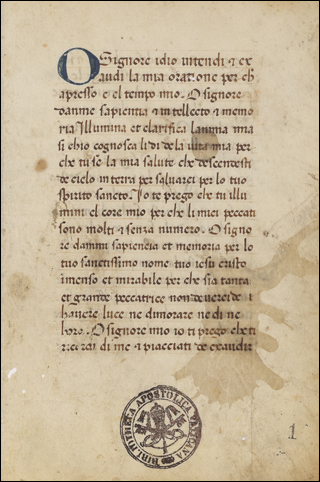 O Signore idio intendi & ex
audi la mia oratione per ch
apresso e el tempo mio. O signore
damme sapientia & intellecto & memo
ria Illumina et clarifica lanima mia
si chio cognosca li di de la uita mia per
che tu se la mia salute che descendesti
de cielo in terra per saluarci per lo tuo
spirito sancto. Io te prego che tu illu
mini el core mio per che li miei peccati
sono molti & senza numero. O signo
re dammi sapiencia et memoria per lo
tuo sanctissimo nome tuo iesu cristo
imenso et mirabile per che sia tanta
et grande peccatrice non deuerei de
hauere luce ne dimorare ne di ne
hore. O signore mio io ti prego che ti
di me & piacciati de exaudir
BIBLIOTHECA APOSTOLICA VATICANA
1